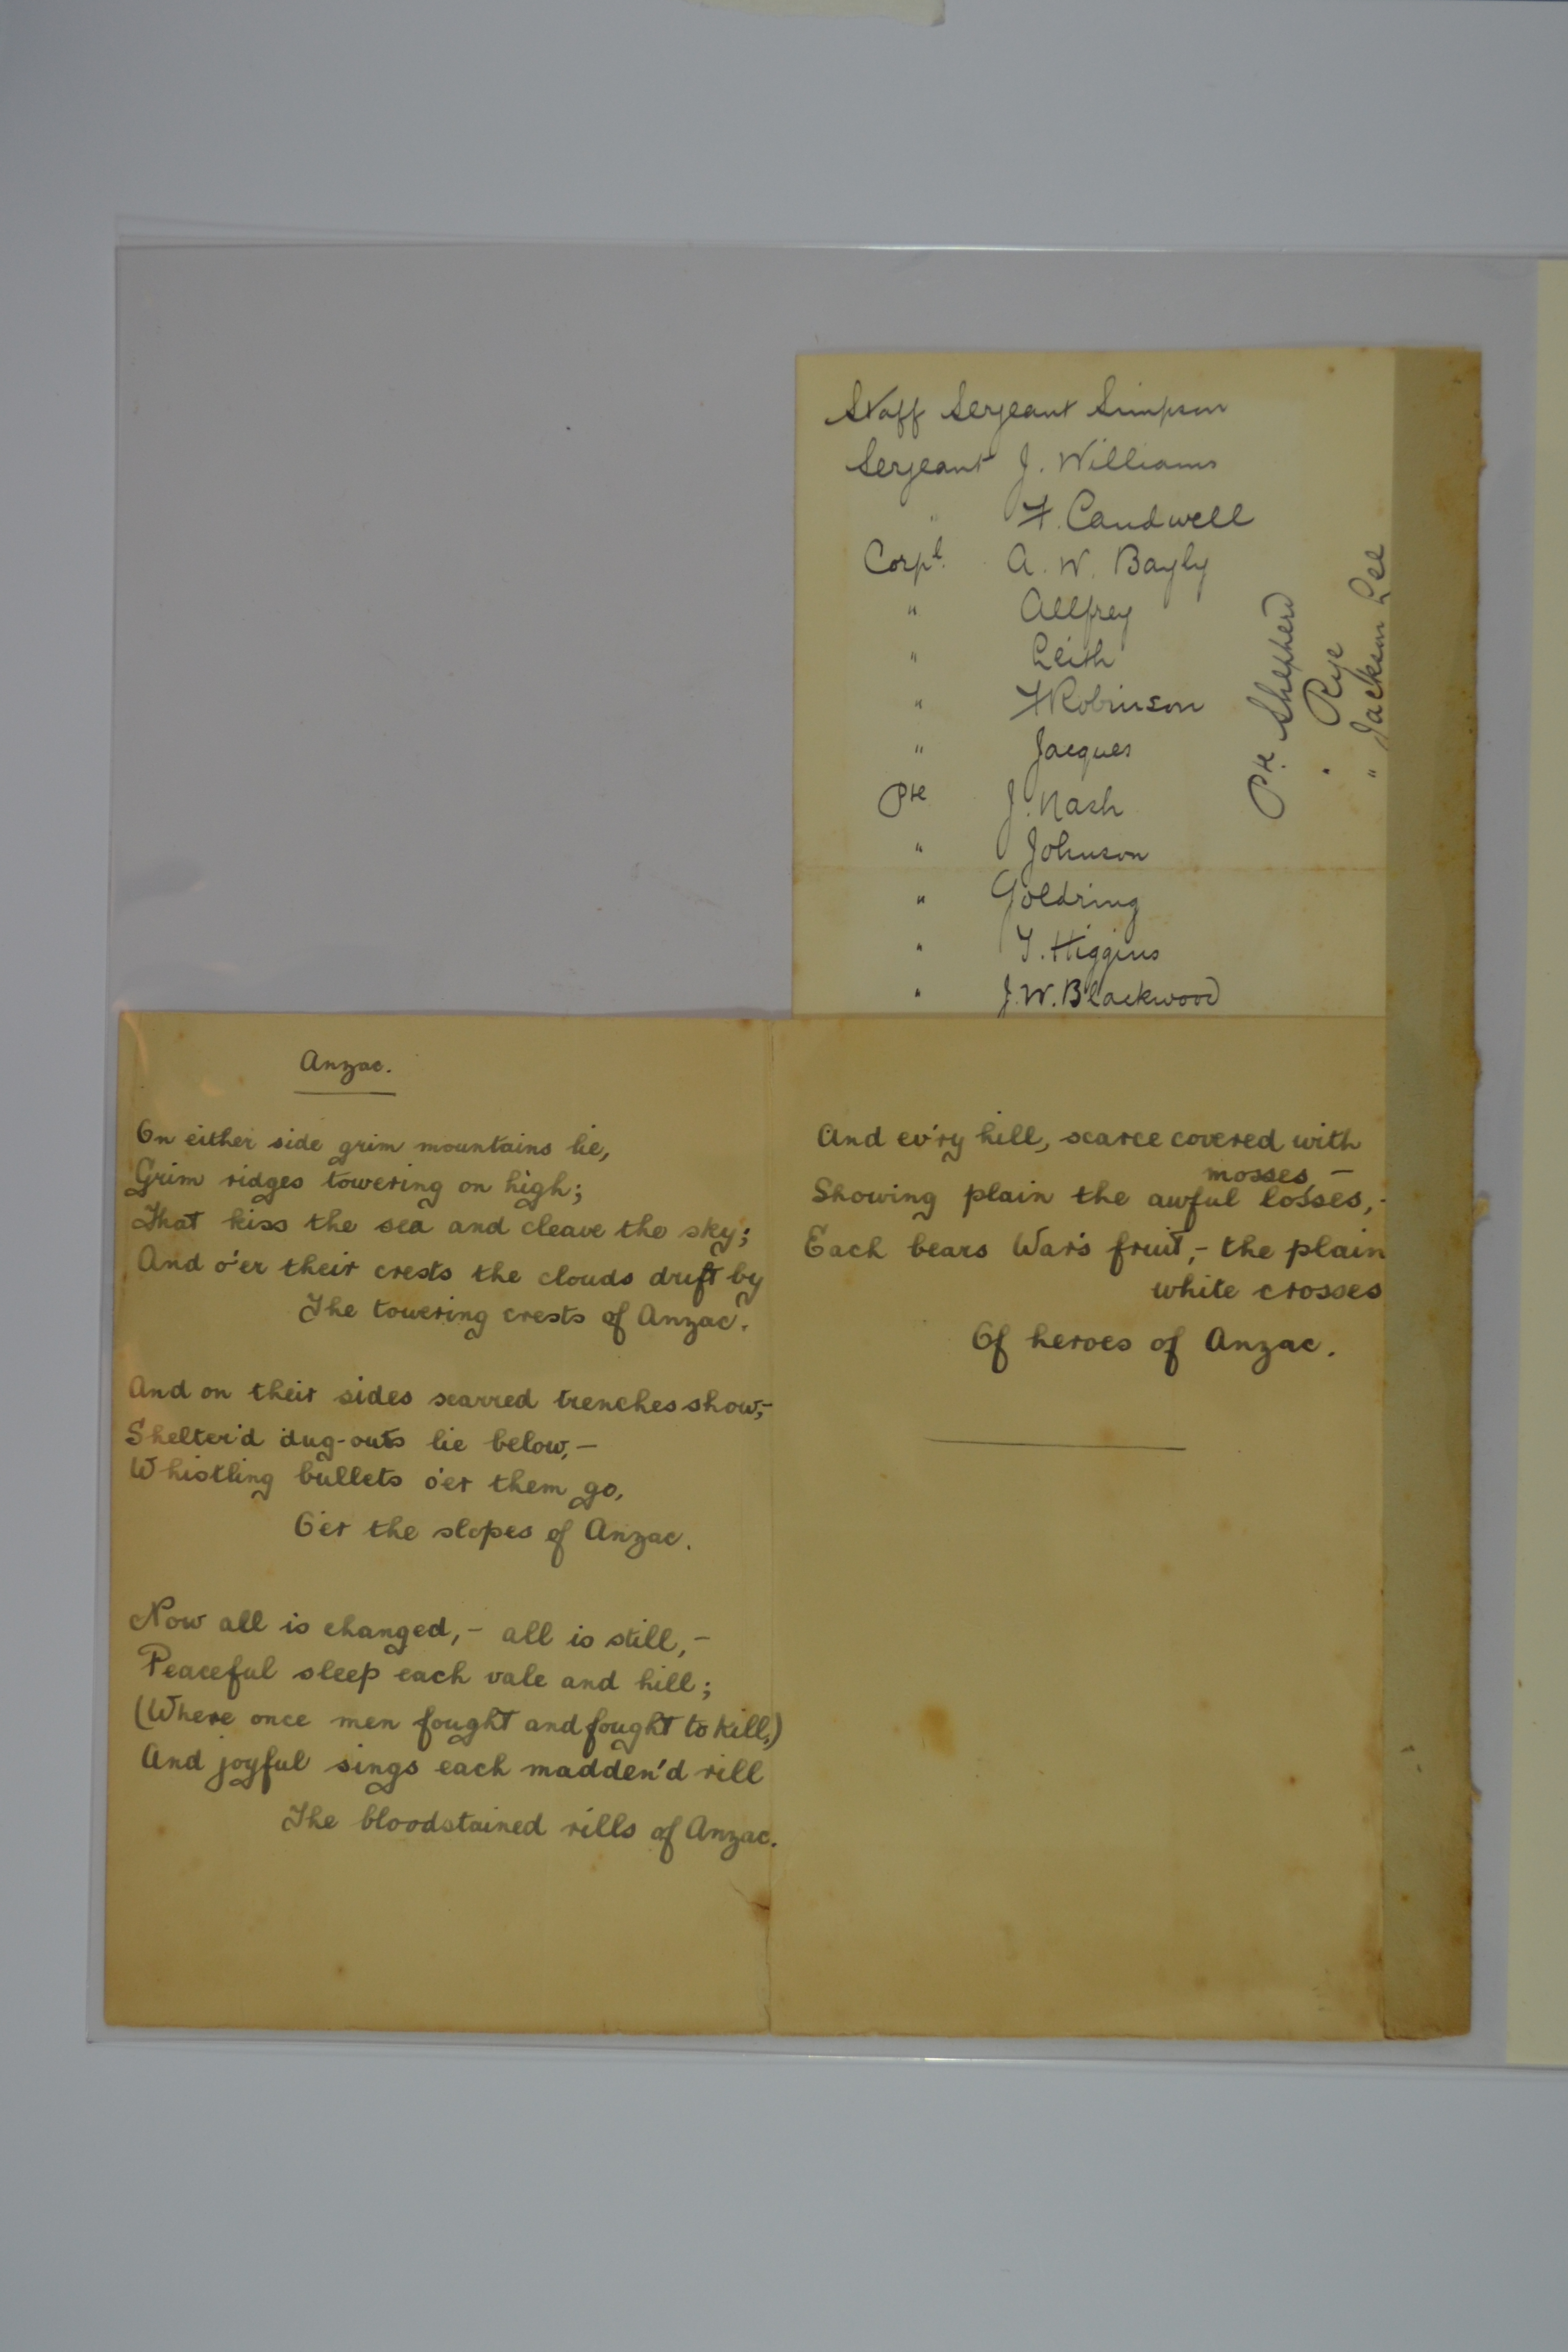 Staff Sergeant Simpson
Sergeant J. Williams
" F. Caudwell
Corpl. A. W. Bayly
" Allfrey
" Leith
" F Robinson
" Jacques
Pte J. Nash
" Johnson
" Goldring
" T. Higgins
" J. W. Blackwood
Pte. Shepherd
" Rye
" Jackson Lee
Anzac.
On either side grim mountains lie,
Grim ridges towering on high;
That kiss the sea and cleave the sky;
And o'er their crests the clouds drift by
The towering crests of Anzac.
And on their sides scarred trenches show,-
Shelter'd dug-outs lie below,-
Whistling bullets o'er them go,
O'er the slopes of Anzac.
Now all is changed,- all is still,-
Peaceful sleep each vale and hill;
(Where once men fought and fought to kill,)
And joyful sings each madden'd rill
The bloodstained rills of Anzac.
And ev'ry hill, scarce covered with
mosses -
Showing plain the awful losses,-
Each bears War's fruit,- the plain
white crosses
Of heroes of Anzac.